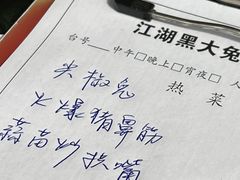 江湖黑大兔
台号____中午□晚上□宵夜□ 人
热 菜
尖椒兔
火爆猪鼻筋
蒜苗炒拱嘴